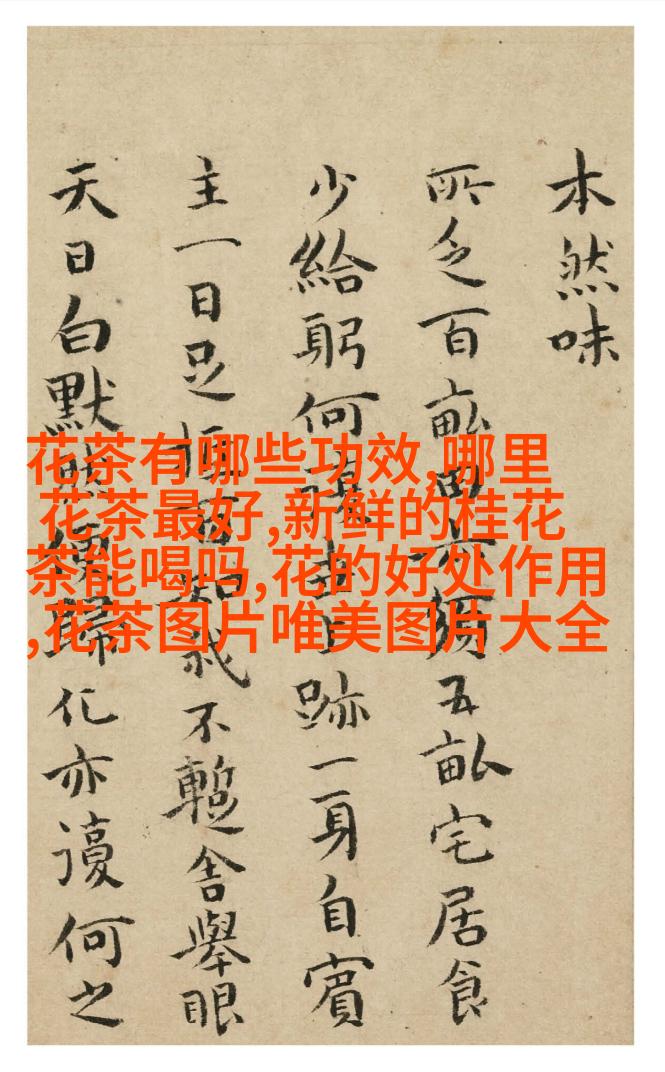 本然味
所乏百畝五畝宅居食
少給躬何跡一身自賓
主一日足我不蹔舍舉眼
天日白默歸化亦謾何之
花茶有哪些功效,哪里
花茶最好,新鲜的桂花
茶能喝吗,花的好处作用
,花茶图片唯美图片大全